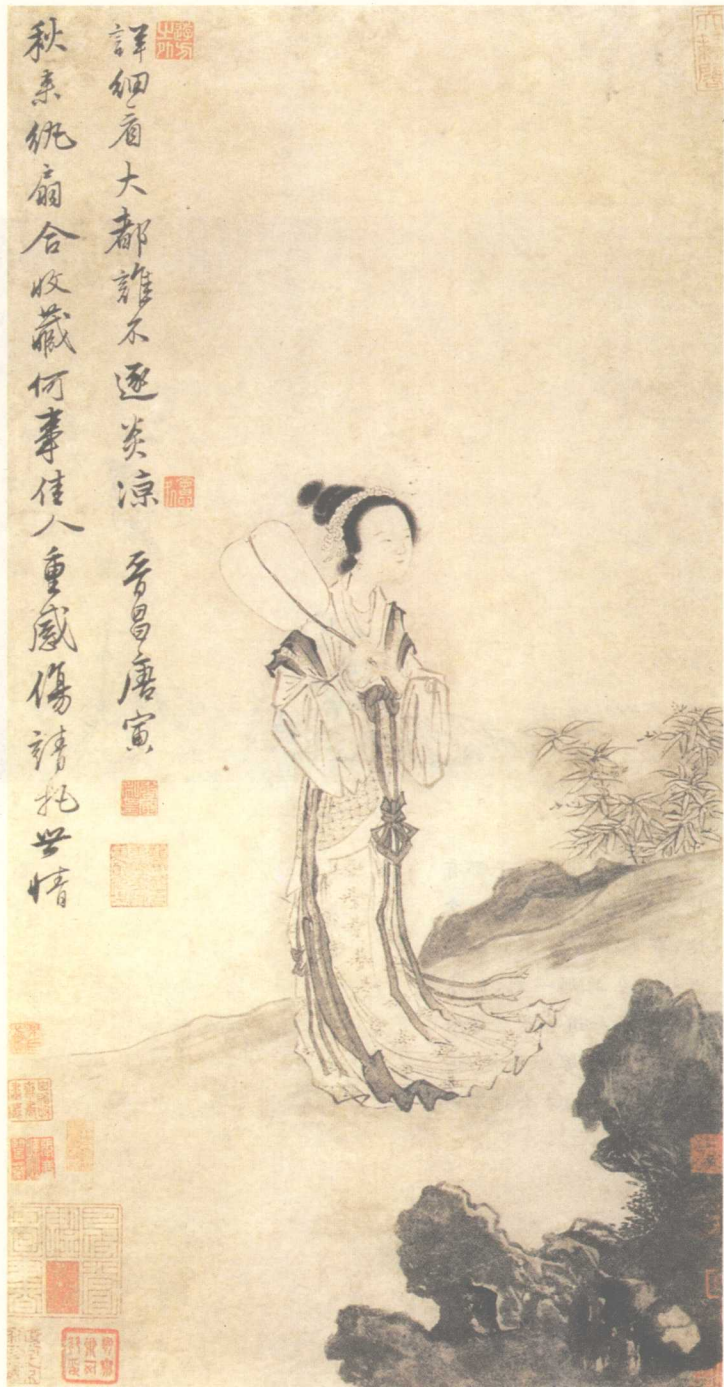 秋来紈扇合收藏何事佳人重感傷請把世情
詳細看大都誰不逐炎凉　晉昌唐寅